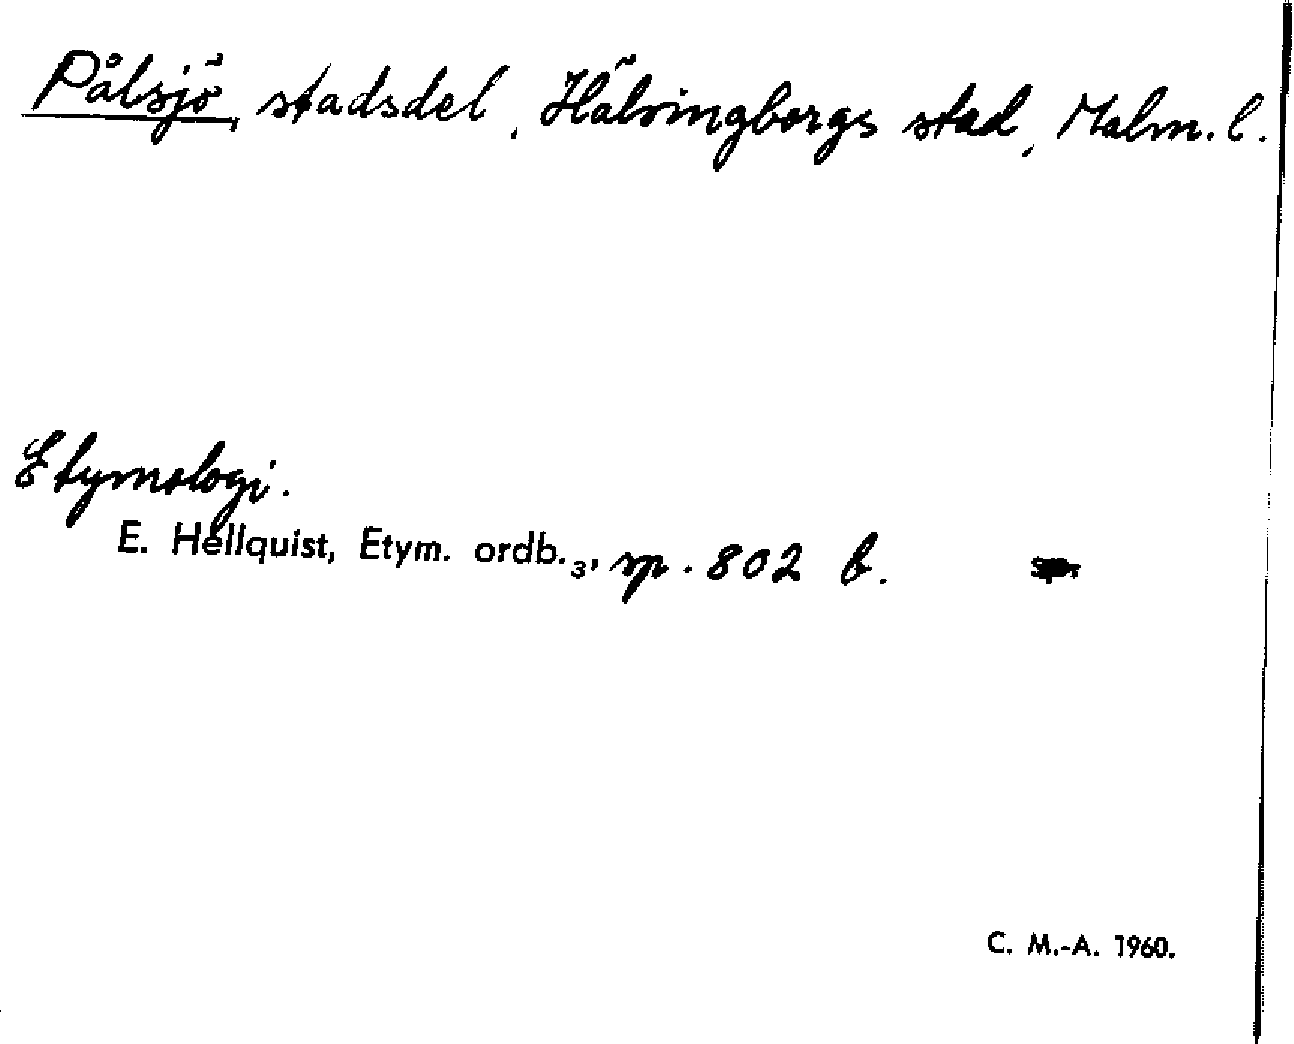 Pålsjö, stadsdel, Hälsingborgs stad, Malm. l.
Etymologi.
E. Hellquist, Etym. ordb.₃, sp. 802 b.
C. M.-A. 1960.